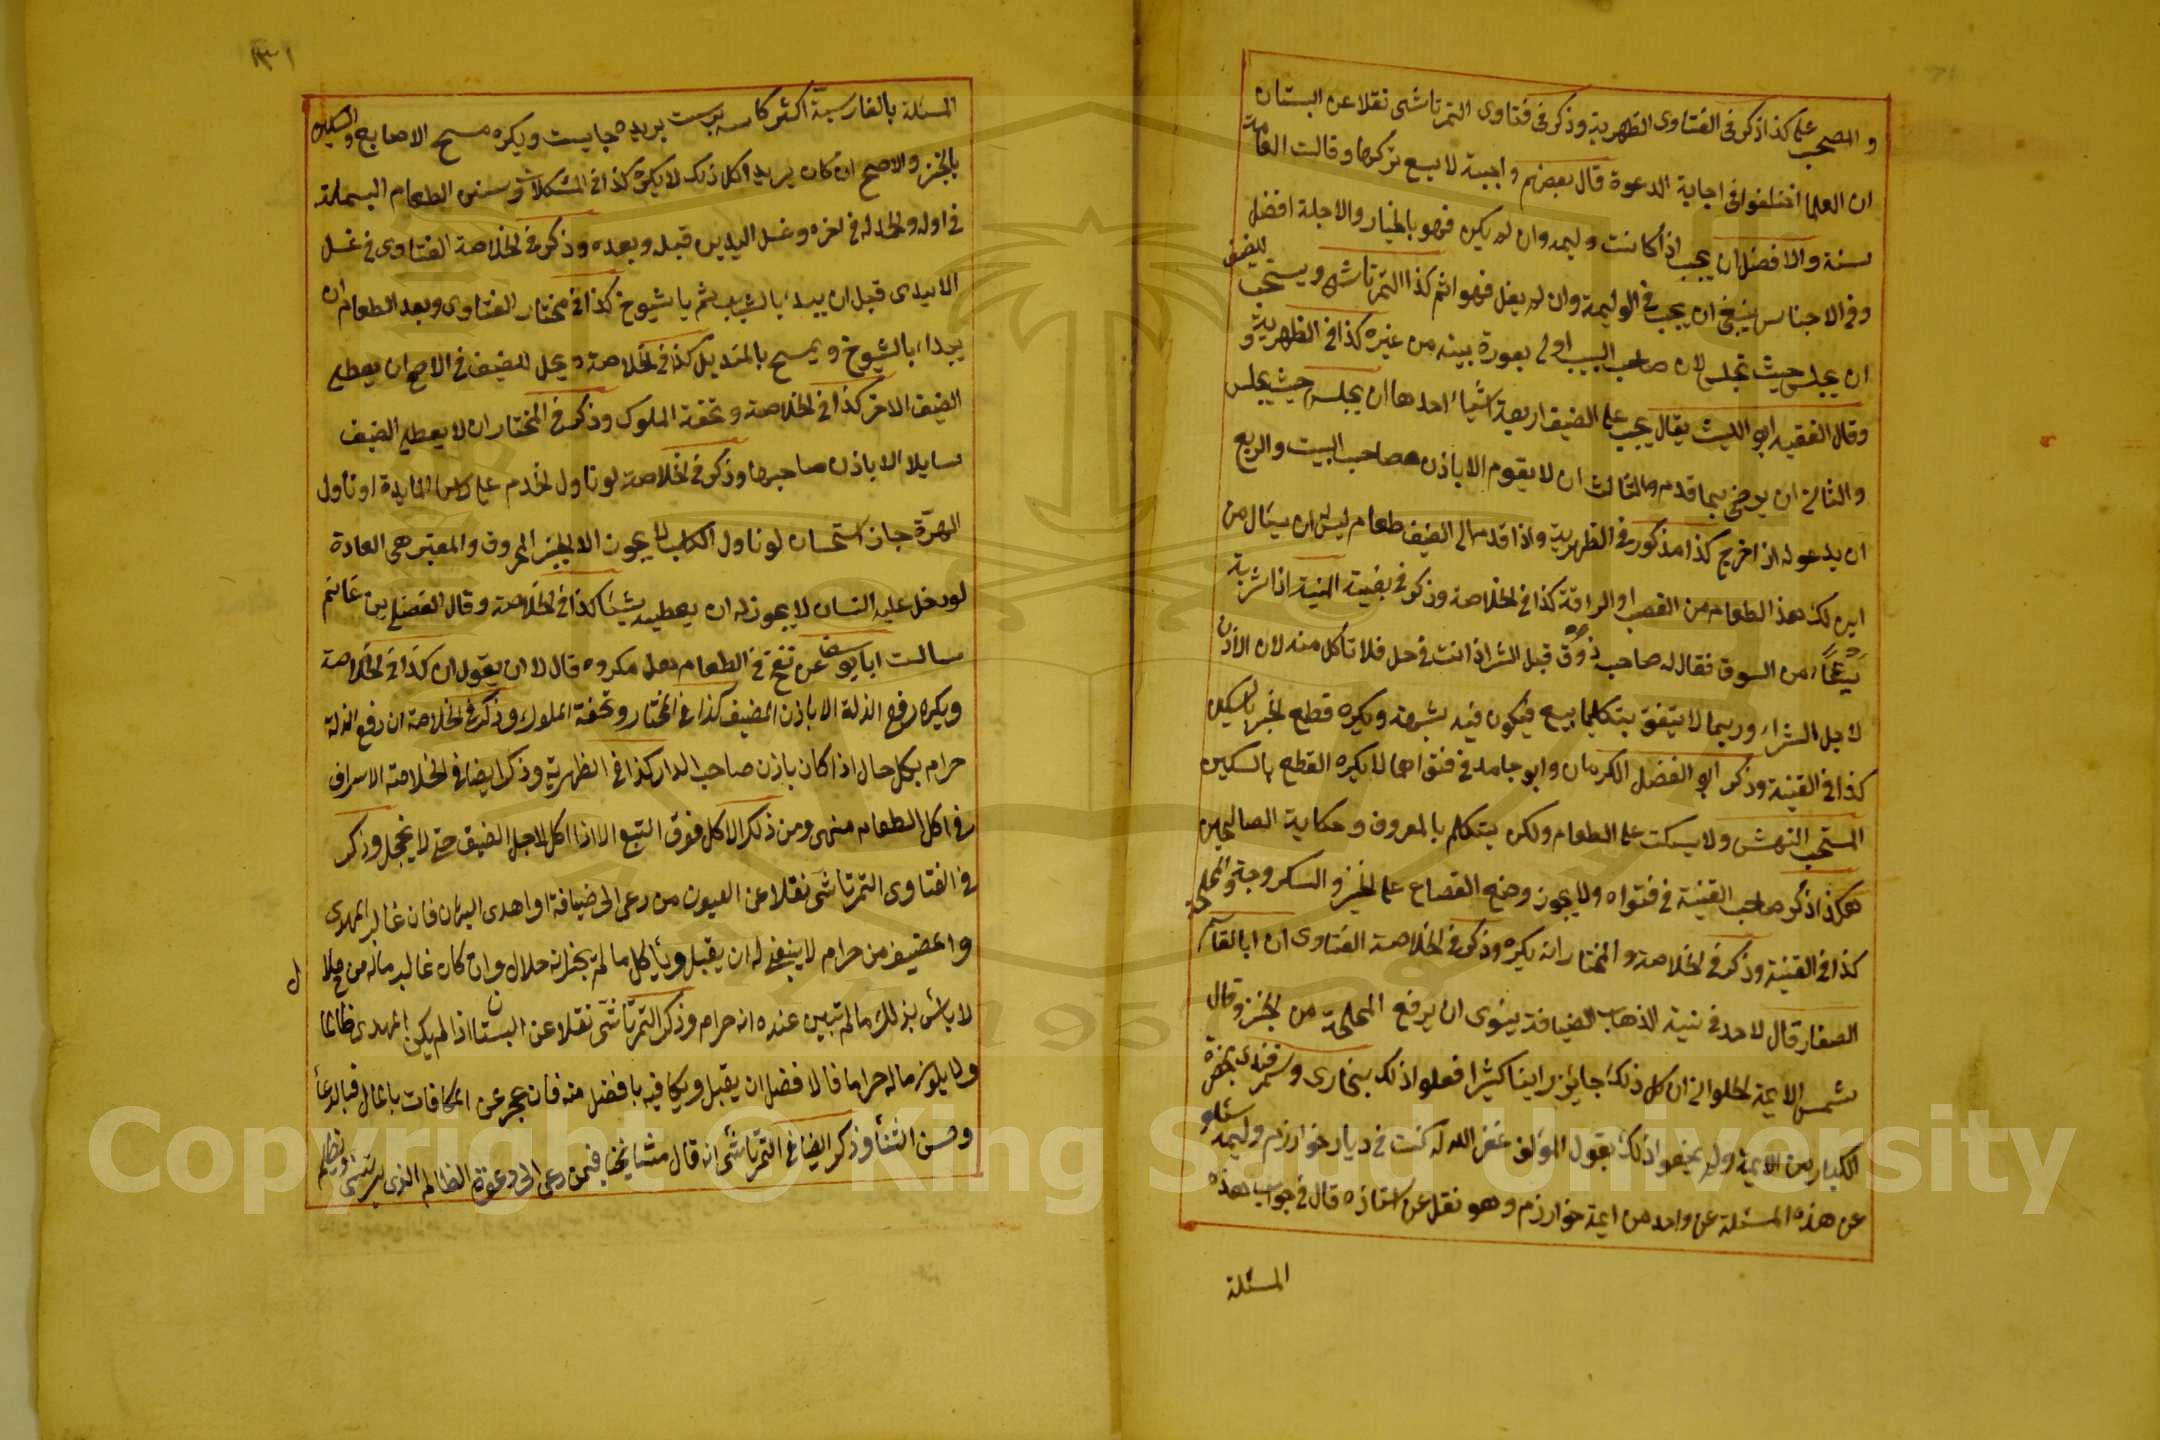 و المصحب على كذا ذكر فى الفتاوى الظهرية وذكر فى فتاوى التمرتاشى نقلا عن البستان
ان العلما اختلفوا فى اجابة الدعوة قال بعضهم واجبة لا يسع تركها وقالت العامة
سنة والافضل ان يجيب اذا كانت وليمة وان لم يكن فهو بالخيار والاجابة افضل
وفى الاجناس ينبغى ان يجيب فى الوليمة وان لم يفعل فهو اثم كذا التمرتاشى ويستحب للضيف
ان يجلس حيث تجلس لان صاحب البيت اولى بعورة بيته من غيره كذا فى الظهرية و
وقال الفقيه ابو الليث يقال يجب على الضيف اربعة اشياء احدها ان يجلس حيث يجلس
والثانى ان يرضى بما قدم والثالث ان لا يقوم الا باذن صاحب البيت والربع
ان يدعو له اذا خرج كذا مذكور فى الظهرية واذا قدم الى الضيف طعام ليس له ان يسئال من
اين لك هذا الطعام من الغصب او السرقة كذا فى الخلاصة وذكر فى بغية المنية اذا شربة
شيئا من السوق فقال له صاحبه ذوق قبل الشرا انت فى حل فلا تأكل منه لان الاذن
لاجل الشراء وربما لا يتفق بينكما بيع فيكون فيه شبهة ويكره قطع الخبز بالسكين
كذا فى القنية وذكر ابو الفضل الكرمان وابو حامد فى فتواهما لا يكره القطع بالسكين
المستحب النهش ولا يسكت على الطعام ولكن يتكلم بالمعروف وحكاية الصالحين
هكذا ذكر صاحب القنية فى فتواه ولا يجوز وضع القصاع على الخبز والسكروجة والمملحة
كذا فى القنية وذكر فى الخلاصة والمختار انه يكره وذكر فى الخلاصة الفتاوى ان ابا القاسم
الصفار قال لا احد فى نية الذهاب الضيافة ينوى ان يرفع المملحة من الخبز وقال
شمس الايمة الحلوانى ان كل ذلك جايز راينا كثيرا فعلوا ذلك ببخارى وسمرقند بحضرة
الكبار من الايمة ولم يمنعوا ذلك يقول المؤلف غفر الله له كنت فى ديار خوارزم وليمة سئلو
عن هذه المسئلة عن واحد من ايمة خوارزم وهو نقل عن استاذه قال فى جواب هذه
المسئلة
المسئلة بالفارسية اكثر كاسه برست بريده جايست ويكره مسح الاصابع والسكين
بالخبز والاصح ان كان يريد اكل ذلك لا يكره كذا فى المشكلات وسنن الطعام البسملة
فى اوله والحمد لله فى اخره وغسل اليدين قبله وبعده وذكر فى الخلاصة الفتاوى فى غسل
الايدى قبل ان يبداء بالشباب ثم يا شيوخ كذا فى مختار الفتاوى وبعد الطعام ان
يبداء بالشيوخ ويمسح بالمنديل كذا فى الخلاصة ويحل للضيف فى الاصح ان يعطى
الضيف الاخر كذا فى الخلاصة وتحفة الملوك وذكر فى المختار ان لا يعطى الضيف
سايلا الا باذن صاحبها وذكر فى الخلاصة لو ناول الخدم على راس المايدة او ناول
الهرة جاز استحسان لو ناول الكلب لا يجوز الا الخبز المحروق والمعتبر هى العادة
لو دخل عليه انسان لا يجوز له ان يعطيه شيئا كذا فى الخلاصة وقال الفضل بن غانم
سالت ابا يوسف عن نفخ فى الطعام هل مكروه قال لا ان يقول ان كذا فى الخلاصة
ويكره رفع الذلة الا باذن المضيف كذا فى المختار وتحفة الملوك وذكر فى الخلاصة ان رفع الذلة
حرام بكل حال اذا كان باذن صاحب الدار كذا فى الظهرية وذكر ايضا فى الخلاصة الاسراف
فى اكل الطعام منهى ومن ذلك الاكل فوق الشبع الا اذا اكل لاجل الضيف حتى لا يخجل وذكر
فى الفتاوى التمرتاشى نقلا عن العيون من دعى الى ضيافة او اهدى اليه ان فان غالب المهدى
والمضيف من حرام لا ينبغى له ان يقبل ويأكل ما لم يخبر انه حلال وان كان غالب ماله من حلا
ل
لا بأس بذلك ما لم تبين عنده انه حرام وذكر التمرتاشى نقلا عن البستان اذا لم يكن المهدى ظالما
ولا يكون ماله حراما فالافضل ان يقبل ويكافيه بافضل منه فان عجز عن المكافات بالمال فبالدعأ
وحسن الثنأ وذكر ايضا فى التمرتاشى انه قال مشايخنا فيمن دعى الى دعوة الظالم الذى يرتشى ويظلم
Copyright © King Saud University